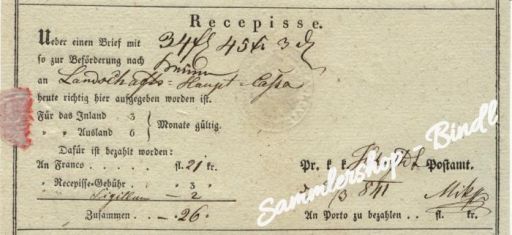 Recepisse.
Ueber einen Brief mit 34 fl 45 kr 3 d
so zur Beförderung nach
an Landschafts-Haupt-Cassa
heute richtig hier aufgegeben worden ist.
Für das Inland 3
" " Ausland 6 } Monate gültig.
Dafür ist bezahlt worden:
An Franco fl. 21 kr.
" Recepisse-Gebühr " 3 "
Sigillum — 2
Zusammen — 26.
Pr. k. k. Postamt.
841
An Porto zu bezahlen fl. kr.
Sammlershop - Bindl